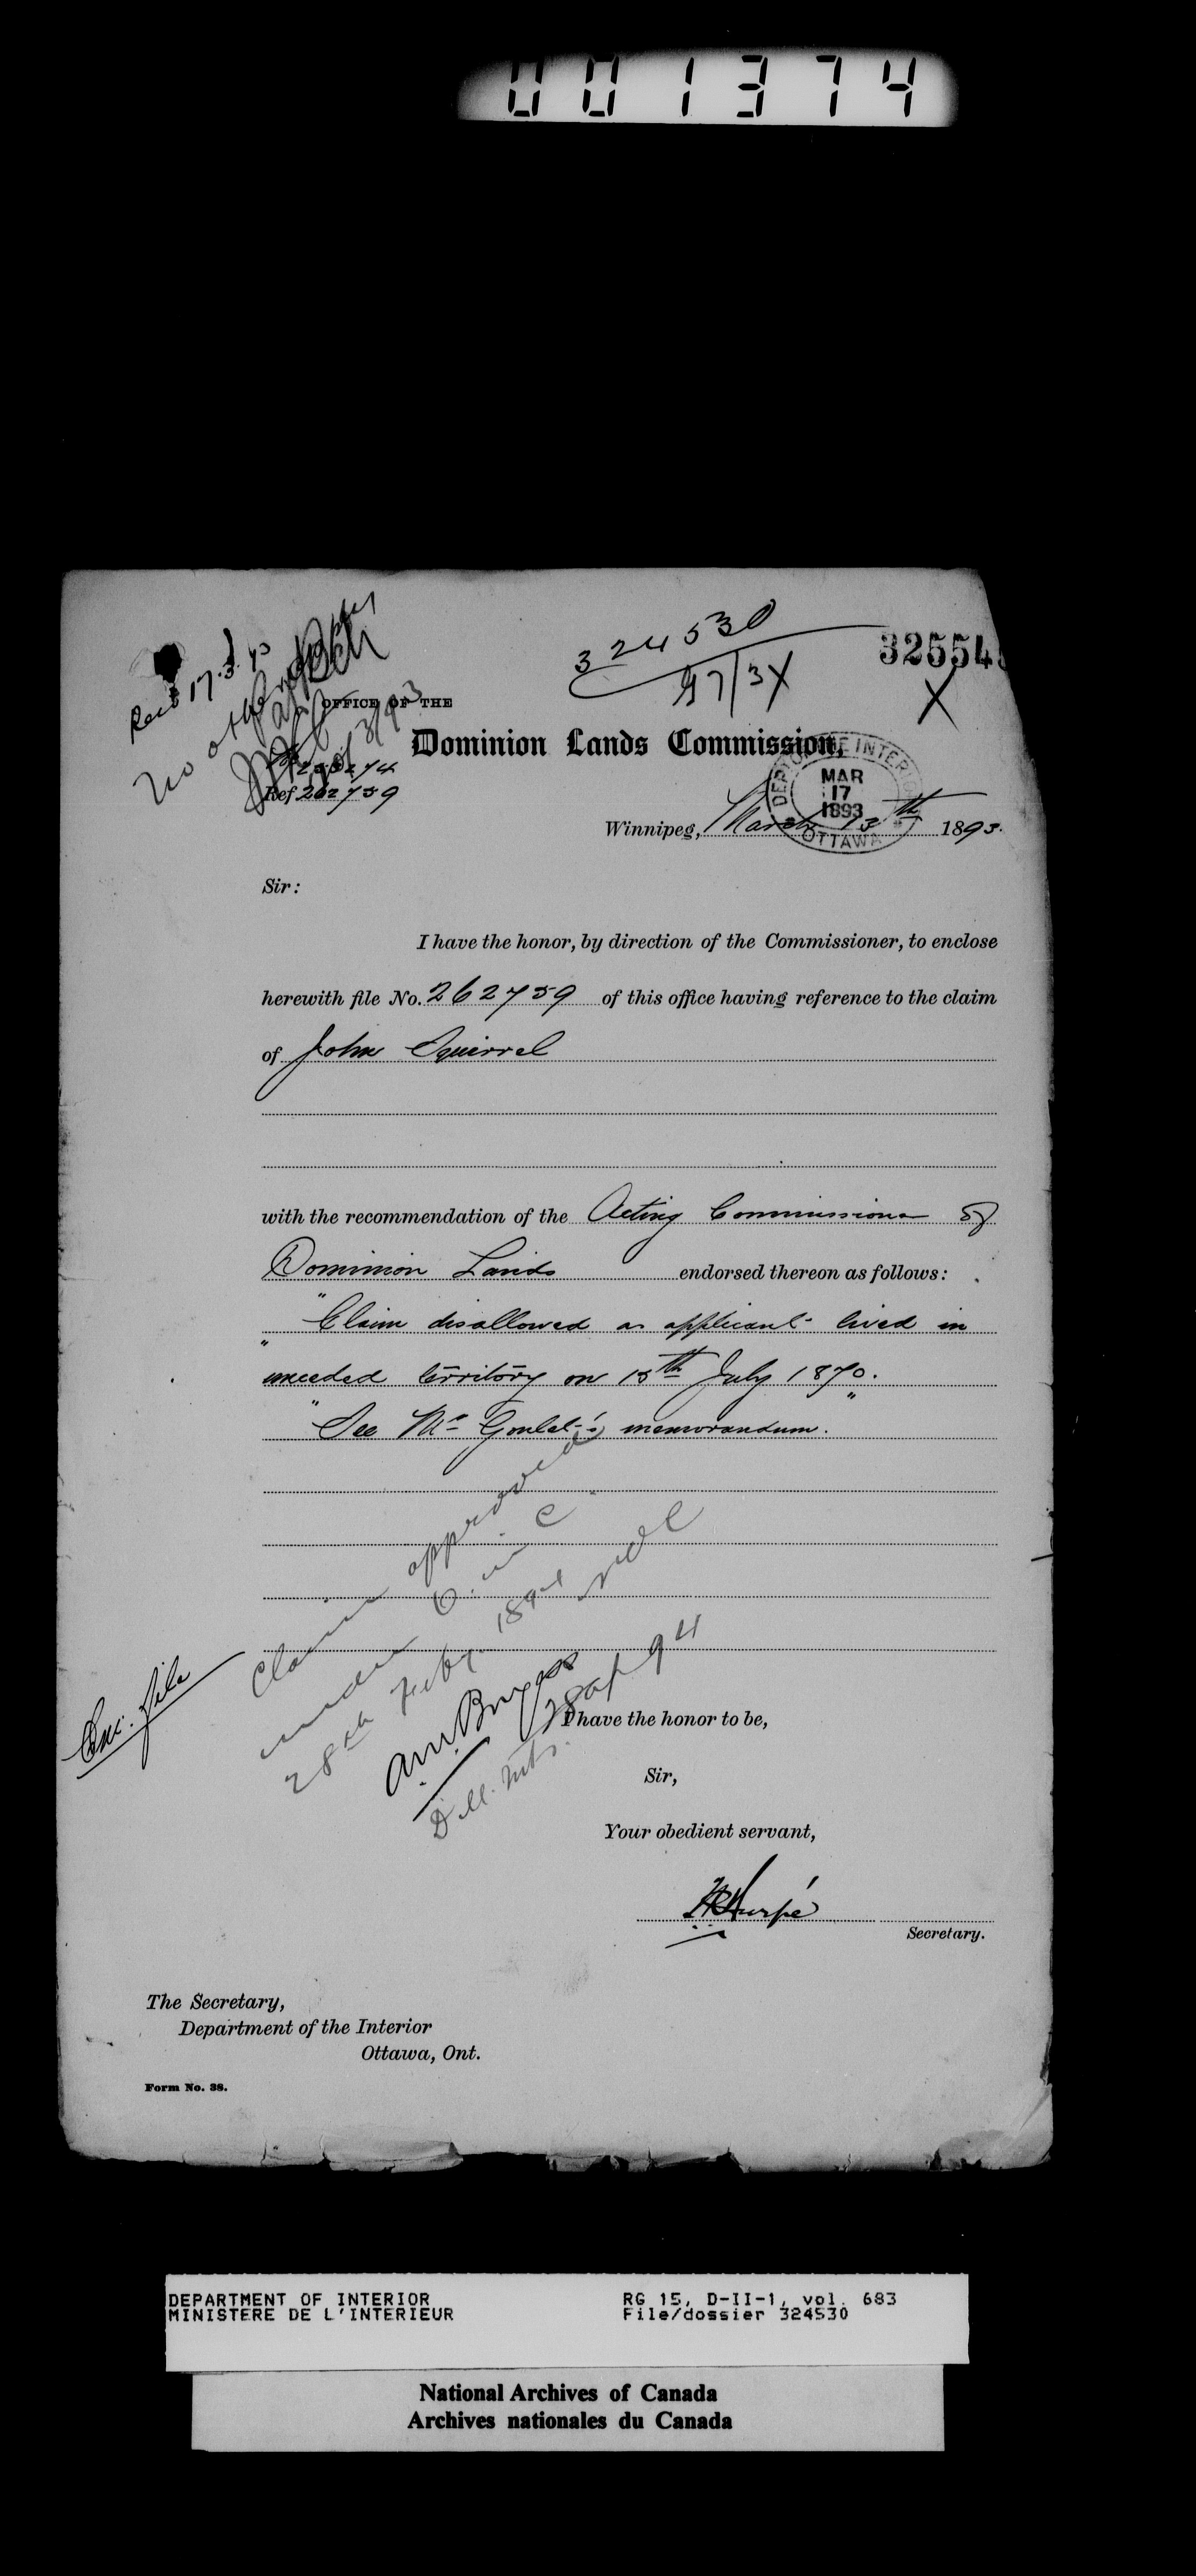 001374
Recd 17.3.93
No other
324530
32554
97/3X
X
OFFICE OF THE
Dominion Lands Commission,
Ref 262759
DEPT OF THE INTERIOR
MAR
17
1893
OTTAWA
Winnipeg, March 13th 1893.
Sir:
I have the honor, by direction of the Commissioner, to enclose
herewith file No. 262759 of this office having reference to the claim
of John Squirrel
with the recommendation of the Acting Commissioner of
Dominion Lands endorsed thereon as follows:
"Claim disallowed as applicant lived in
"unceded territory on 15th July 1870."
"See Mr Goulet's memorandum.
Claim approved
under O. in C
28th Feby. 1894
Enc. file
28 ap 94
I have the honor to be,
Sir,
Your obedient servant,
Secretary.
The Secretary,
Department of the Interior
Ottawa, Ont.
Form No. 38.
DEPARTMENT OF INTERIOR RG 15, D-II-1, vol. 683
MINISTERE DE L'INTERIEUR File/dossier 324530
National Archives of Canada
Archives nationales du Canada